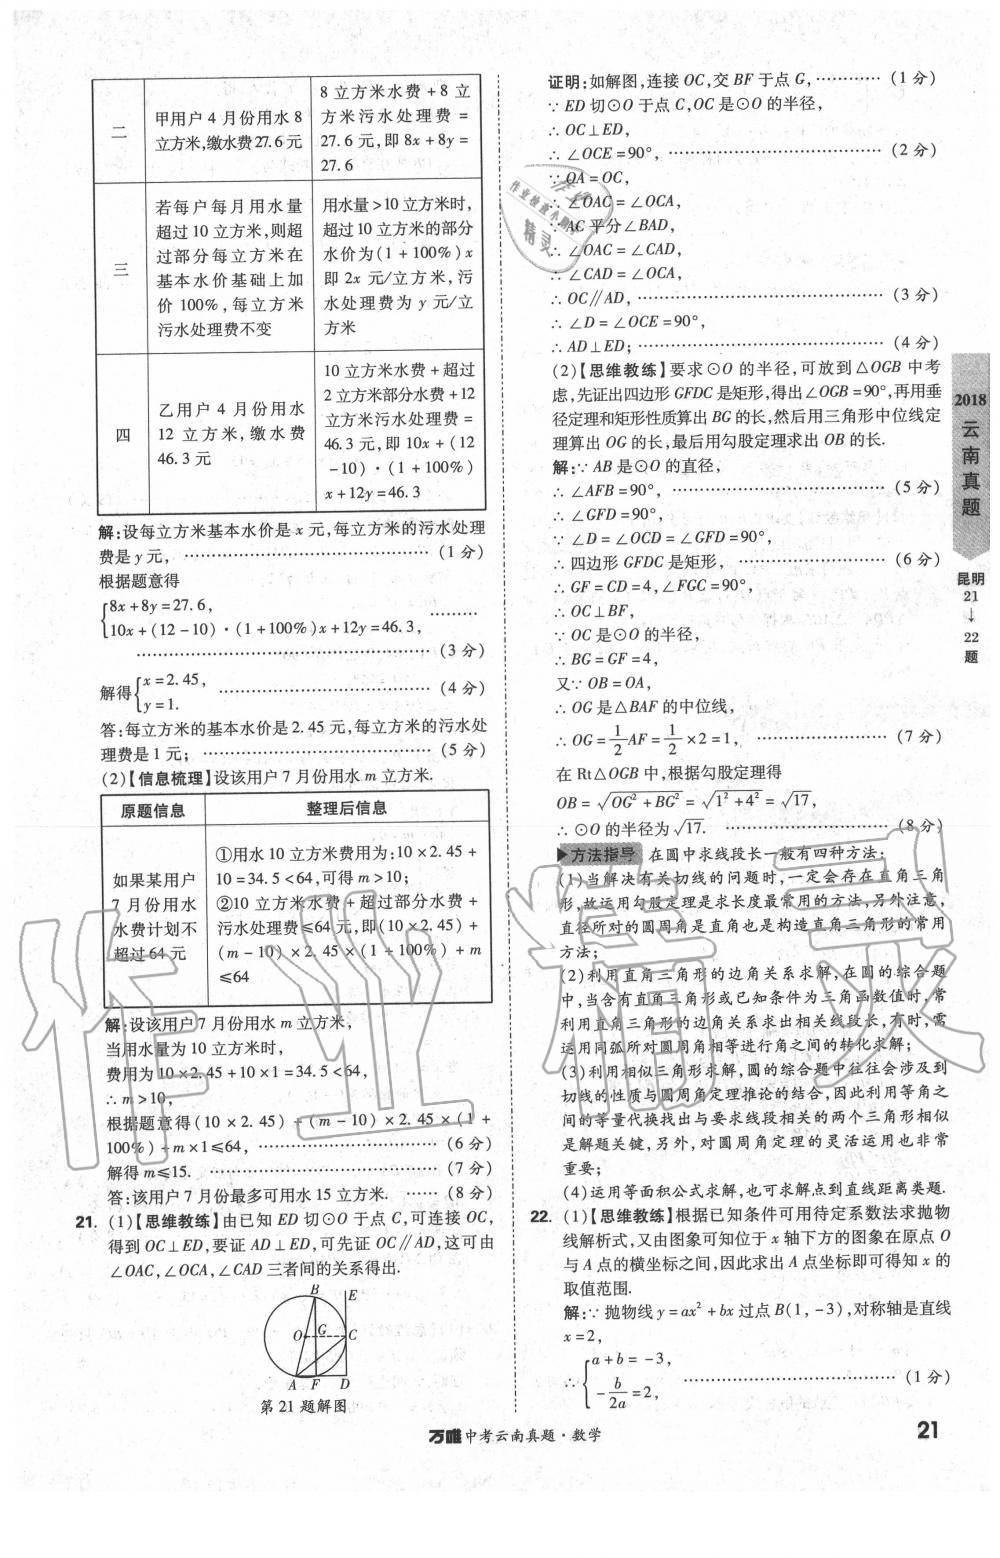 二
甲用户 4 月份用水 8
立方米,缴水费27.6元
8 立方米水费 + 8 立
方米污水处理费 =
27.6 元,即 8x + 8y =
27.6
三
若每户每月用水量
超过 10 立方米,则超
过部分每立方米在
基本水价基础上加
价 100%,每立方米
污水处理费不变
用水量>10立方米时,
超过10立方米的部分
水价为(1 + 100%)x
即 2x 元/立方米,污
水处理费为 y 元/立方
米
四
乙用户 4 月份用水
12 立方米,缴水费
46.3元
10 立方米水费 + 超过
2立方米部分水费+12
立方米污水处理费 =
46.3 元,即 10x + (12
-10)·(1+100%)
x+12y=46.3
解:设每立方米基本水价是 x 元,每立方米的污水处理
费是 y 元, ………………………… (1分)
根据题意得
{8x+8y=27.6, …………
10x+(12-10)·(1+100%)x+12y=46.3,
………………………… (3分)
解得{x=2.45, y=1. ………………………… (4分)
答:每立方米的基本水价是2.45元,每立方米的污水处
理费是1元; ………………………… (5分)
(2)【信息梳理】设该用户7月份用水 m 立方米.
原题信息
整理后信息
如果某用户
7 月份用水
水费计划不
超过64元
①用水10立方米费用为:10×2.45+
10=34.5<64,可得m>10;
②10 立方米水费 + 超过部分水费 +
污水处理费≤64元,即(10×2.45)+
(m-10)×2.45×(1+100%)+m
≤64
解:设该用户7月份用水 m 立方米,
当用水量为10立方米时,
费用为10×2.45+10×1=34.5<64,
∴m>10,
根据题意得(10×2.45)+(m-10)×2.45×(1+
100%)+m×1≤64, ………………………… (6分)
解得m≤15. ………………………… (7分)
答:该用户7月份最多可用水15立方米. …… (8分)
21. (1)【思维教练】由已知 ED 切⊙O 于点 C,可连接 OC,
得到OC⊥ED,要证 AD⊥ED,可先证 OC∥AD,这可由
∠OAC,∠OCA,∠CAD三者间的关系得出.
B E
O G C
A F D
第21题解图
证明:如解图,连接OC,交BF于点G, ………… (1分)
∵ED切⊙O于点C,OC是⊙O的半径,
∴OC⊥ED,
∴∠OCE=90°, ………………………… (2分)
∵OA=OC,
∴∠OAC=∠OCA,
∵AC平分∠BAD,
∴∠OAC=∠CAD,
∴∠CAD=∠OCA,
∴OC∥AD, ………………………… (3分)
∴∠D=∠OCE=90°,
∴AD⊥ED; ………………………… (4分)
(2)【思维教练】要求⊙O的半径,可放到△OGB中考
虑,先证出四边形GFDC是矩形,得出∠OGB=90°,再用垂
径定理和矩形性质算出 BG 的长,然后用三角形中位线定
理算出 OG 的长,最后用勾股定理求出 OB 的长.
解:∵AB是⊙O的直径,
∴∠AFB=90°, ………………………… (5分)
∴∠GFD=90°,
∵∠D=∠OCD=∠GFD=90°,
∴四边形GFDC是矩形, ………………………… (6分)
∴GF=CD=4,∠FGC=90°,
∴OC⊥BF,
∵OC是⊙O的半径,
∴BG=GF=4,
又∵OB=OA,
∴OG是△BAF的中位线,
∴OG=1/2AF=1/2×2=1, ………………………… (7分)
在Rt△OGB中,根据勾股定理得
OB=√(OG²+BG²)=√(1²+4²)=√17,
∴⊙O的半径为√17. ………………………… (8分)
方法指导 在圆中求线段长一般有四种方法:
(1)当解决有关切线的问题时,一定会存在直角三角
形,故运用勾股定理是求长度最常用的方法,另外注意,
直径所对的圆周角是直角也是构造直角三角形的常用
方法;
(2)利用直角三角形的边角关系求解,在圆的综合题
中,当含有直角三角形或已知条件为三角函数值时,常
利用直角三角形的边角关系求出相关线段长,有时,需
运用同弧所对圆周角相等进行角之间的转化求解;
(3)利用相似三角形求解,圆的综合题中往往会涉及到
切线的性质与圆周角定理推论的结合,因此利用等角之
间的等量代换找出与要求线段相关的两个三角形相似
是解题关键,另外,对圆周角定理的灵活运用也非常
重要;
(4)运用等面积公式求解,也可求解点到直线距离类题.
22. (1)【思维教练】根据已知条件可用待定系数法求抛物
线解析式,又由图象可知位于 x 轴下方的图象在原点 O
与 A 点的横坐标之间,因此求出 A 点坐标即可得知 x 的
取值范围.
解:∵抛物线y=ax²+bx过点B(1,-3),对称轴是直线
x=2,
∴{a+b=-3, -b/2a=2, ………………………… (1分)
2018
云南真题
昆明
21
↓
22
题
万唯中考云南真题·数学
21
作业精灵
作业检查小助手
精灵